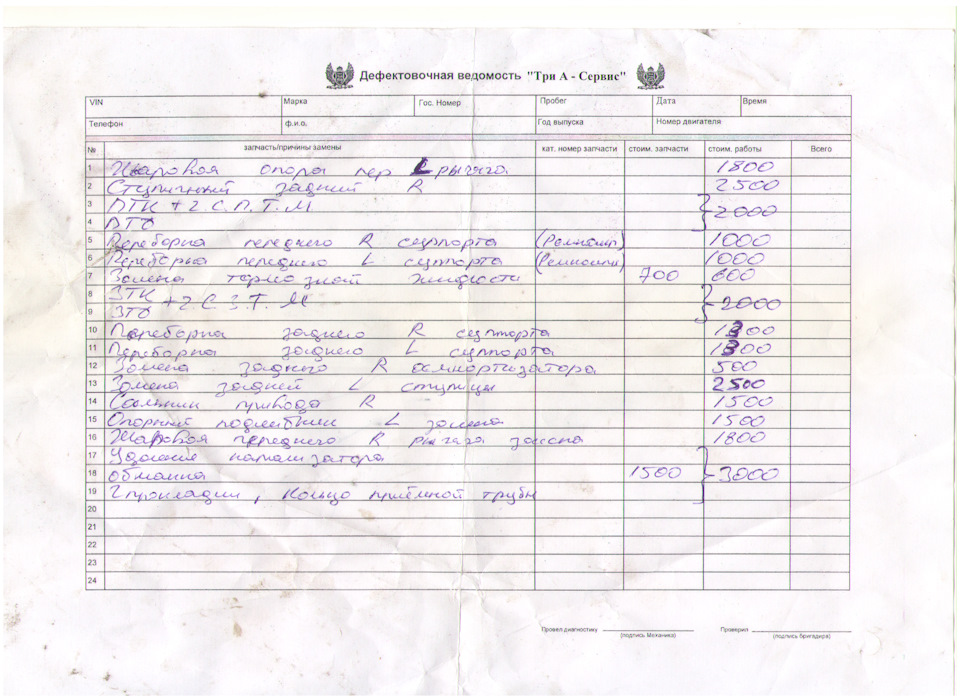 Дефектовочная ведомость "Три А - Сервис"
VIN Марка Гос. Номер Пробег Дата Время
Телефон ф.и.о. Год выпуска Номер двигателя
№ запчасть/причины замены кат. номер запчасти стоим. запчасти стоим. работы Всего
1 Шаровая опора пер L рычага 1800
2 Ступичный задний R 2500
3 ПТК + 2.С.П.Т.М
2000
4 ПТД
5 Переборка переднего R суппорта (Ремкомп) 1000
6 Переборка переднего L суппорта (Ремкомп) 1000
7 Замена тормозной жидкости 700 600
8 ЗТК + 2.С.З.Т.М
2000
9 ЗТД
10 Переборка заднего R суппорта 1300
11 Переборка заднего L суппорта 1300
12 Замена заднего R аммортизатора 500
13 Замена задней L ступицы 2500
14 Сальник привода R 1500
15 Опорный подшипник L замена 1500
16 Шаровая переднего R рычага замена 1800
17 Удаление катализатора
18 обманка 1500 3000
19 2 прокладки, кольцо приёмной трубы
20
21
22
23
24
Провел диагностику (подпись Механика) Проверил (подпись бригадира)